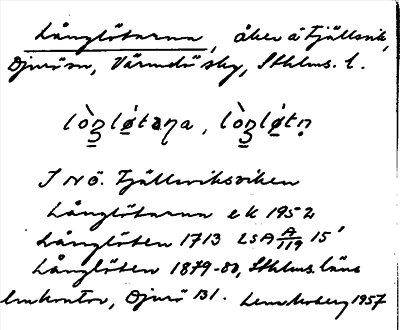 Långlötarna, åker å Fjällsvik,
Djurö sn, Värmdö skg, Sthlms. l.
lòŋlø̀tana, lòŋlø̀tṇ
I NÖ. Fjällsviksviken
Långlötarna ek 1952
Långlöten 1713 LSA A/119 15'
Långlöten 1879-80, Sthlms läns
lmkontor, Djurö 131. 1957